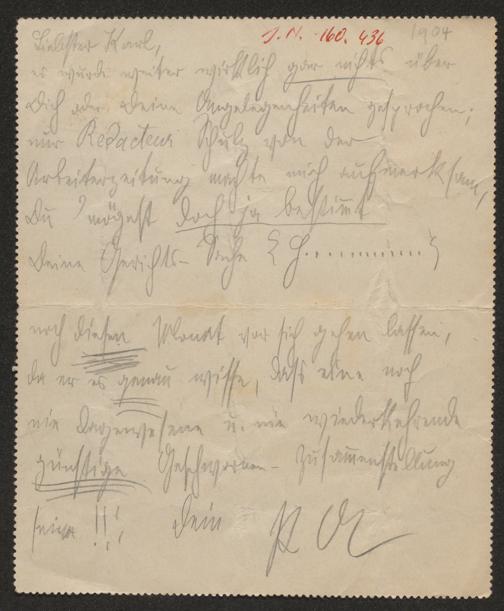 J. N. 160.436
1904
Liebster Karl,
es wurde weiter wirklich gar nichts über
Dich oder Deine Angelegenheiten gesprochen;
nur Redacteur Schulz von der
Arbeiterzeitung machte mich aufmerksam,
Du mögest doch ja bestimmt
Deine Gerichts-Sache
noch diesen Monat vor sich gehen lassen,
da er es genau wisse, dass eine noch
nie dagewesene u. nie wiederkehrende
günstige Geschwornen-Zusammenstellung
seien!!! Dein